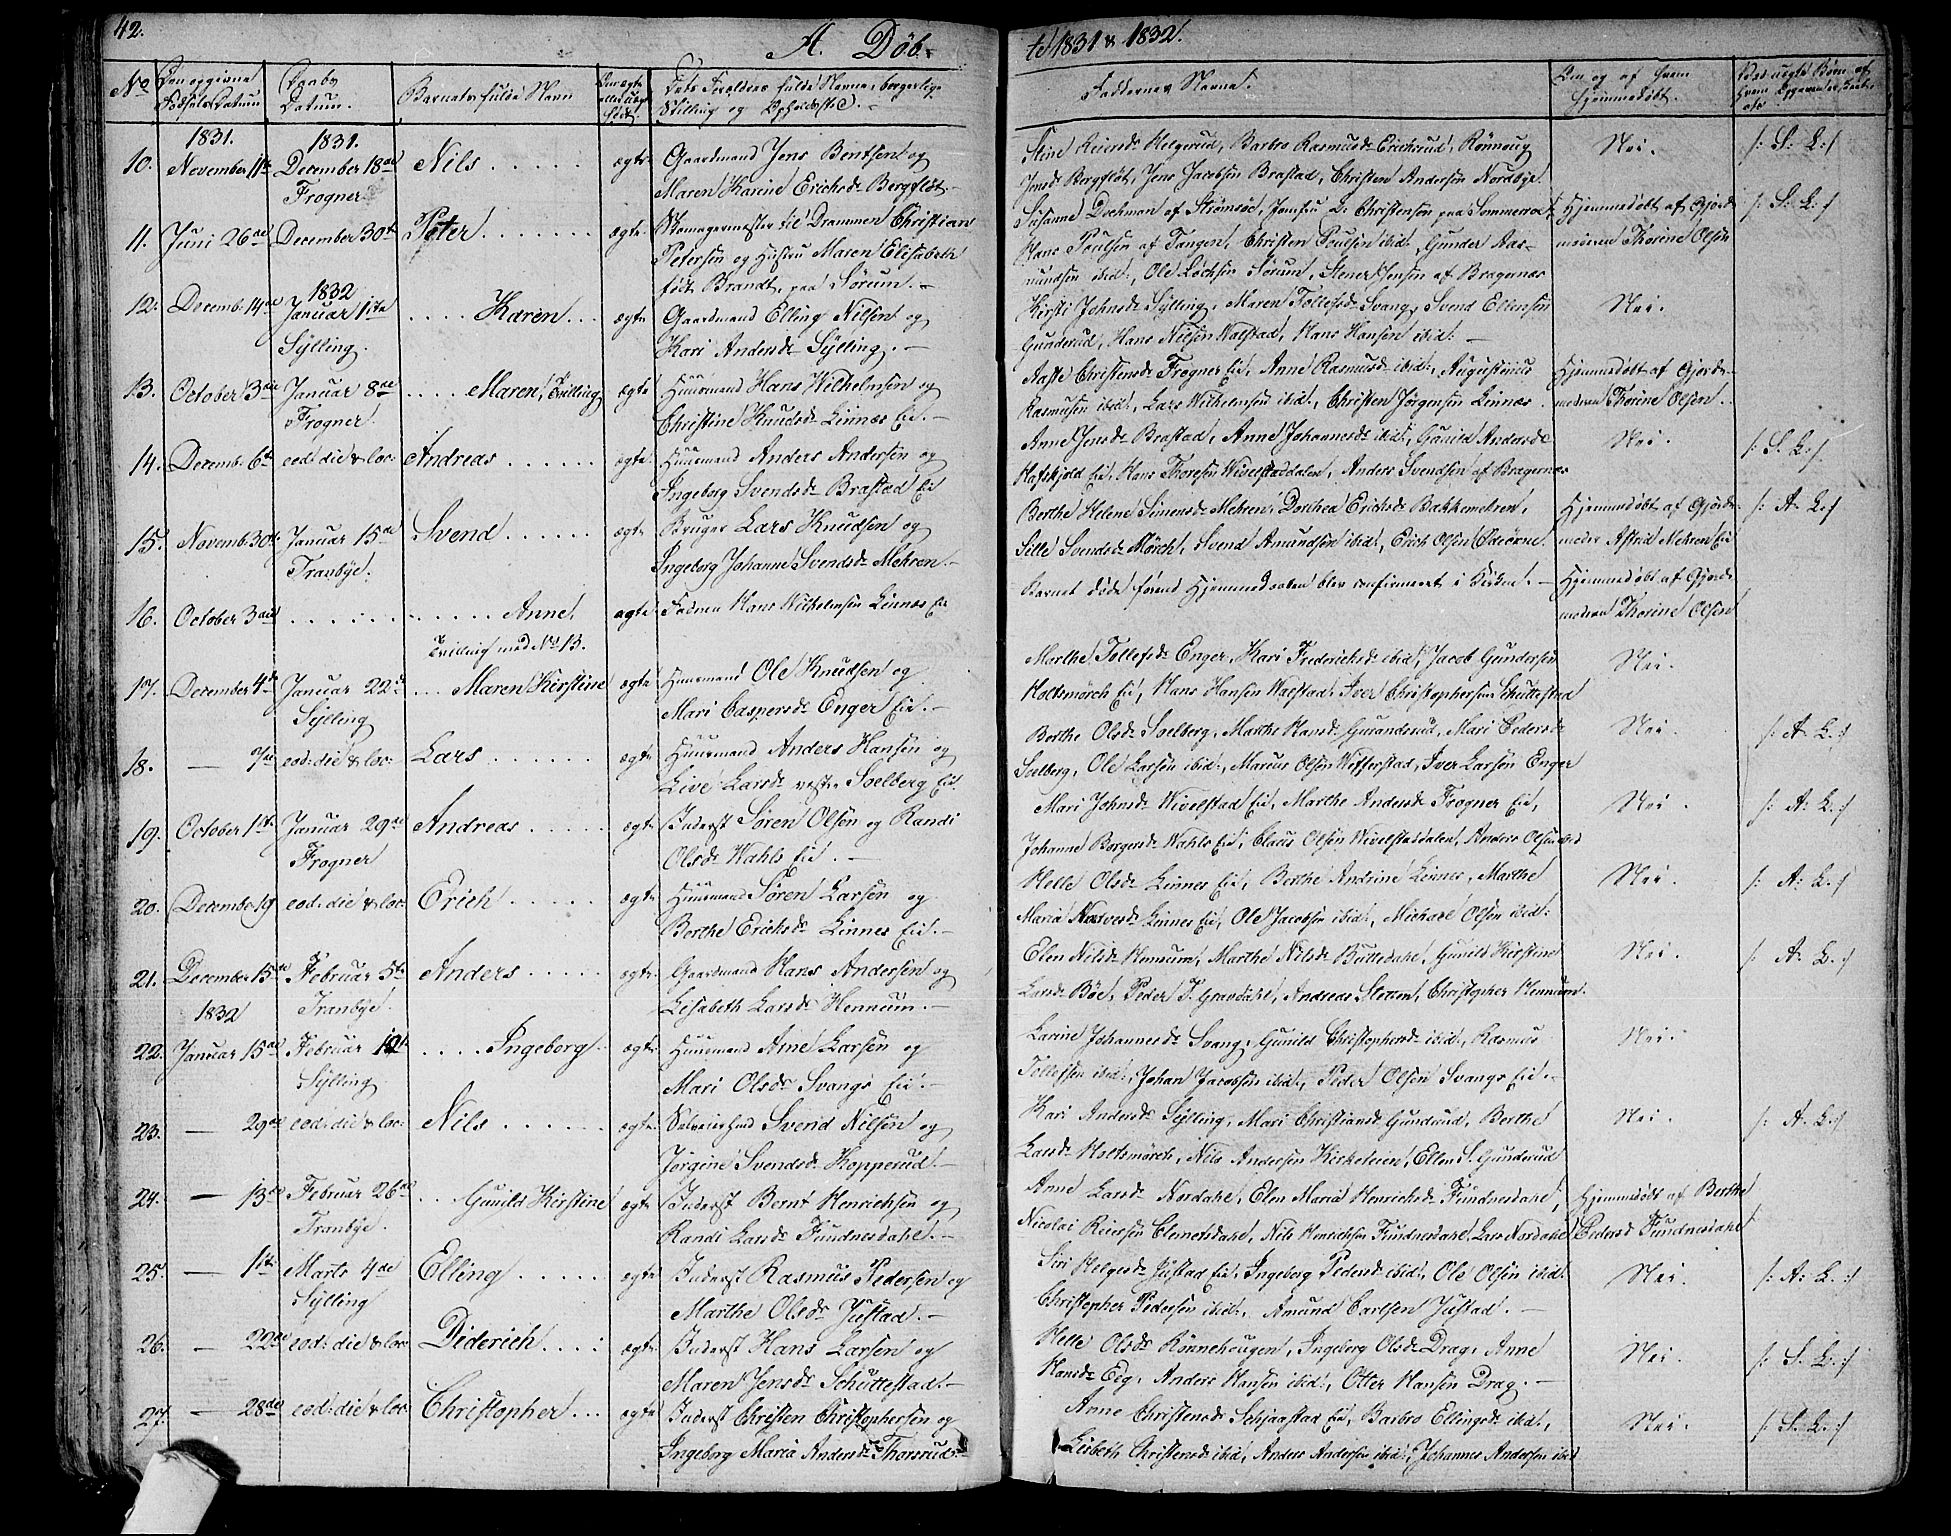 42.
A. Döb-
te 1831 & 1832.
No
Den opgivne Fødsels Datum
Daabs Datum.
Barnets fulde Navn
Faddernes Navne.
1831.
1831.
10. November 11te December 18de Nils ægte Gaardmand Jens Bentsen og
Frogner Maren Karine Erichsd. Bergflöt.
Stine Reiersd. Helgerud, Barbro Rasmusd. Erichsrud, Rönnoug
Jensd. Bergflöt, Jens Jacobsen Brastad, Christen Andersen Nordbye.
Nei. /: S: L: /
11. Juni 26de December 30te Peter ægte Skomagermester til Drammen Christian
Petersen og Hustru Maren Elisabeth
født Brandt, paa Sörum.
Susanne Dochman af Strömsöe, Jomfru L. Christensen paa Sommerroe
Hans Poulsen af Tangen, Christen Poulsen ibid:, Gunder Aas-
mundsen ibid:, Ole Lochsen Sörum, Stener Jensen af Bragernæs
Hjemmedöbt af Gjorde-
moderen Thorine Olsen
/: S: L: /
1832
12. Decemb: 14de Januar 1ste Karen ægte Gaardmand Elling Nilsen og
Sylling. Kari Andersd. Sylling.
Kirsti Johnsd. Sylling, Maren Tollefsd. Svang, Svend Ellensen
Gunderud, Hans Nilsen Walstad, Hans Hansen ibid:
Nei.
13. October 3die Januar 8de Maren, Tvilling ægte Huusmand Hans Wilhelmsen og
Frogner. Christine Knudsd. Linnæs Eie.
Aaste Christensd. Frogner Eie, Anne Rasmusd. ibid:, Augustinus
Rasmusen ibid:, Lars Wilhelmsen ibid:, Christen Jörgensen Linnæs
Hjemmedöbt af Gjorde-
moderen Thorine Olsen.
14. Decemb. 6te eod: die & loc: Andreas ægte Huusmand Anders Andersen og
Ingeborg Svendsd. Brastad Eie
Anne Jensd. Brastad, Anne Johannesd. ibid:, Gunild Andersd.
Hafskjold Eie, Hans Thoresen Wivelstaddalen, Anders Svendsen af Bragernæs
Nei. /: S. L: /
15. Novemb: 30te Januar 15de Svend ægte Bruger Lars Knudsen og
Tranbye. Ingeborg Johanne Svendsd. Mehren.
Berthe Helene Simensd. Mehren, Dorthea Erichsd. Bakkemehren,
Sille Svendsd. Mörch, Svend Amundsen ibid:, Erich Olsen Oderne
Hjemmedöbt af Gjorde-
moder Astrid Mehren Eie
/: A: L: /
16. October 3die Anne, ægte Faderen Hans Wilhelmsen Linnæs Eie
Tvilling med No 13.
Barnet døde førend Hjemmedaaben blev confirmeret i Kirken.
Hjemmedöbt af Gjorde-
moderen Thorine Olsen
17. December 4de Januar 22de Maren Kirstine ægte Huusmand Ole Knudsen og
Sylling Mari Caspersd. Enger Eie.
Marthe Tollefsd. Enger, Kari Fredericksd. ibid:, Jacob Gundersen
Holtsmörch Eie, Hans Hansen Walstad, Iver Christophersen Schuttestad
Nei.
18. — 7de eod: die & loc: Lars ægte Huusmand Anders Hansen og
Live Larsd. vestre Solberg Eie.
Berthe Olsd. Solberg, Marthe Hansd. Gurandsrud, Mari Pedersd.
Solberg, Ole Larsen ibid:, Marcus Olsen Wefferstad, Iver Larsen Enger
Nei. /: A: L: /
19. October 1ste Januar 29de Andreas ægte Inderst Sören Olsen og Randi
Frogner Olsd. Wahls Eie.
Mari Johnsd. Wivelstad Eie, Marthe Andersd. Frogner Eie,
Johanne Borgersd. Wahls Eie, Claus Olsen Wivelstaddalen, Anders Olsen
Nei. /: A: L: /
20. December 19 eod: die & loc: Erich ægte Huusmand Sören Larsen og
Berthe Erichsd. Linnes Eie.
Helle Olsd. Linnes Eie, Berthe Andrine Linnes, Marthe
Maria Linnes Eie, Ole Jacobsen ibid:, Michael Olsen ibid:
Nei. /: A: L: /
21. December 15de Februar 5te Anders ægte Gaardmand Hans Andersen og
Tranbye. Lisabeth Larsd. Hennum.
Elen Nilsd. Hennum, Marthe Nilsd. Buttedahl, Gunild Kirstine
Larsd. Böe, Peder T. Gravdahl, Andreas Sletten, Christopher Hennum.
Nei. /: A: L: /
1832
22. Januar 15de Februar 12te Ingeborg ægte Huusmand Arne Larsen og
Sylling. Mari Olsd. Svangs Eie.
Karine Johannesd. Svang, Gunild Christophersd. ibid:, Rasmus
Tollefsen ibid:, Johan Jacobsen ibid:, Peder Olsen Svangs Eie.
Nei.
23. — 29de eod: die & loc: Nils ægte Selveierbond Svend Nilsen og
Jörgine Svendsd. Kopperud.
Kari Andersd. Sylling, Mari Christiansd. Gunderud, Berthe
Larsd. Holtsmörch, Nils Andersen Kirkeleien, Ellen S. Gunderud
Nei. /: A: L: /
24. — 13de Februar 26de Gunild Kirstine ægte Inderst Bernt Henrichsen og
Tranbye. Randi Larsd. Fundnesdahl.
Anne Larsd. Nordahl, Elen Maria Henrichsd. Fundnesdahl,
Nicolai Reiersen Clemetsdahl, Nils Henrichsen Fundnesdahl, Lars Nordahl
Hjemmedöbt af Berthe
Pedersd. Fundnesdahl
25. — 1ste Marts 4de Elling ægte Inderst Rasmus Pedersen og
Sylling Marthe Olsd. Justad.
Siri Helgesd. Justad Eie, Ingeborg Pedersd. ibid:, Ole Olsen ibid:
Christopher Pedersen ibid:, Amund Carlsen Justad.
Nei. /: A: L: :/
26. — 22de eod: die & loc: Diderich ægte Inderst Hans Larsen og
Maren Jensd. Schuttestad.
Helle Olsd. Rönnehougen, Ingeborg Olsd. Drag, Anne
Hansd. Eeg, Anders Hansen ibid:, Otter Hansen Drag.
Nei. /: S. L: :/
27. — 28de eod: die & loc: Christopher ægte Inderst Christen Christophersen og
Ingeborg Maria Andersd. Thorsrud.
Anne Christensd. Schjaastad Eie, Barbro Ellingsd. ibid:,
Lisbeth Christensd. ibid, Anders Andersen ibid:, Johannes Andersen ibid
Nei. /: S. L: :/